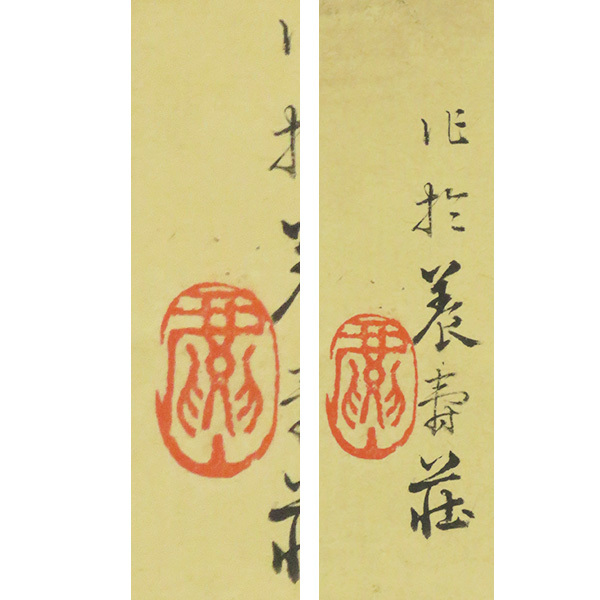 作於養壽莊